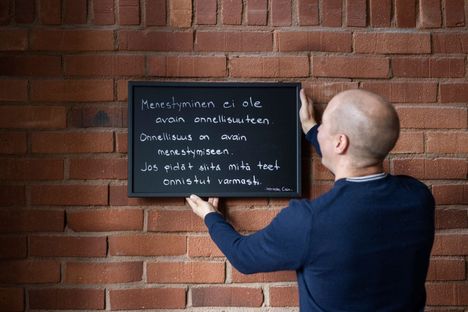 Menestyminen ei ole
avain onnellisuuteen.
Onnellisuus on avain
menestymiseen.
Jos pidät siitä mitä teet
onnistut varmasti.